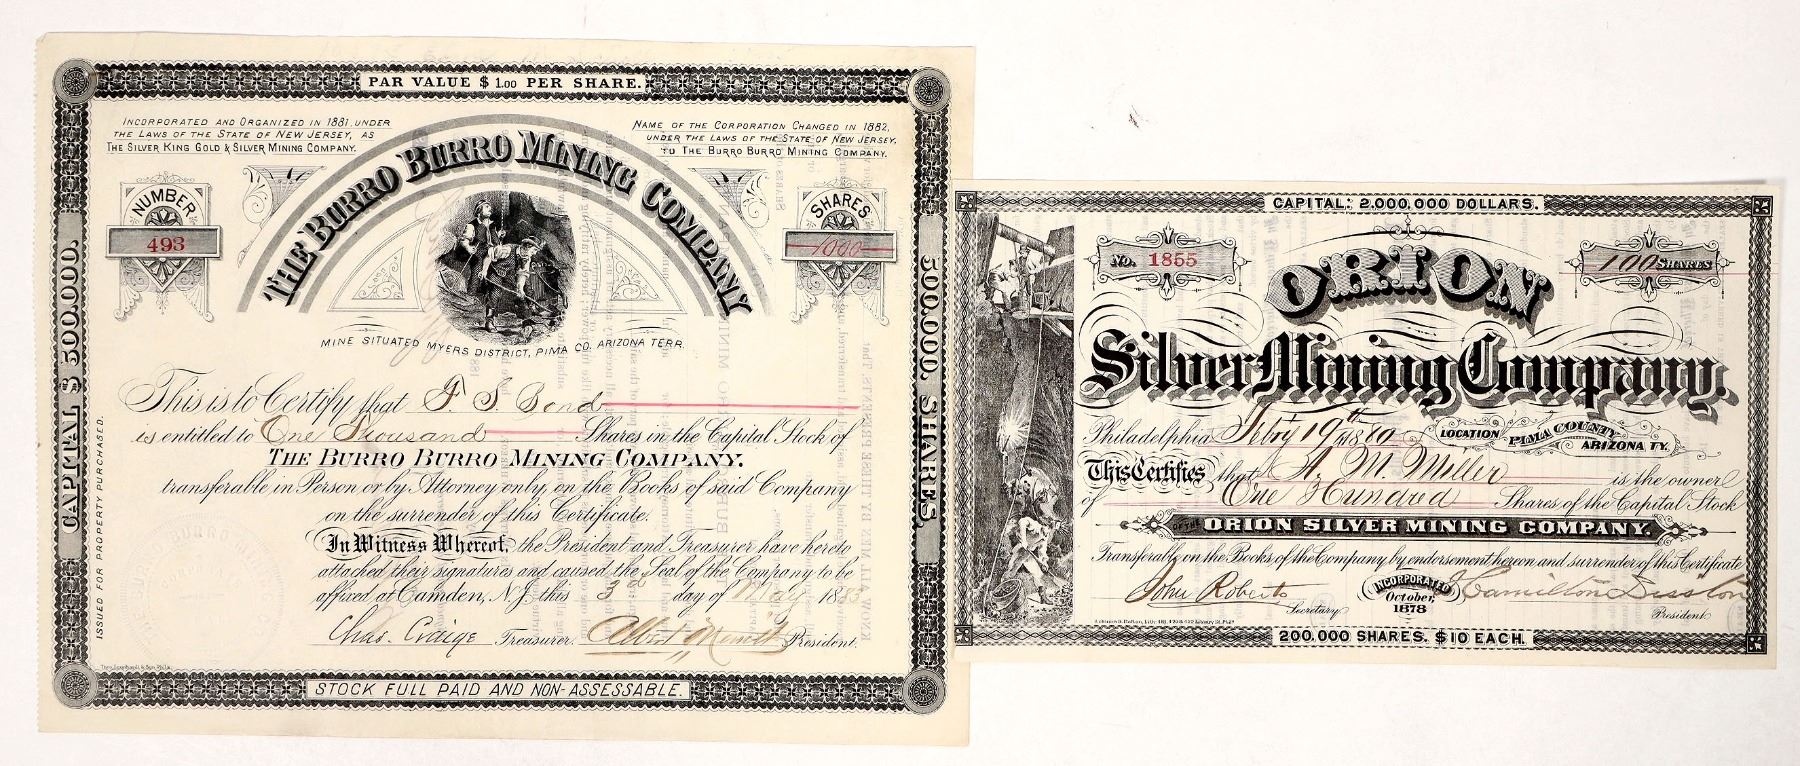 PAR VALUE $ 1.00 PER SHARE.
INCORPORATED AND ORGANIZED IN 1881, UNDER
THE LAWS OF THE STATE OF NEW JERSEY, AS
THE SILVER KING GOLD & SILVER MINING COMPANY.
NAME OF THE CORPORATION CHANGED IN 1882,
UNDER THE LAWS OF THE STATE OF NEW JERSEY,
TO THE BURRO BURRO MINING COMPANY.
THE BURRO BURRO MINING COMPANY
NUMBER
493
SHARES
1000
MINE SITUATED MYERS DISTRICT, PIMA CO. ARIZONA TERR.
CAPITAL $ 500.000.
500.000. SHARES.
ISSUED FOR PROPERTY PURCHASED.
This is to Certify that F. S. Bond
is entitled to One Thousand Shares in the Capital Stock of
THE BURRO BURRO MINING COMPANY.
transferable in Person or by Attorney only, on the Books of said Company
on the surrender of this Certificate.
In Witness Whereof, the President and Treasurer have hereto
attached their signatures and caused the Seal of the Company to be
affixed at Camden, N.J. this 3rd day of May 1883
Chas. Craige Treasurer. Albert President.
STOCK FULL PAID AND NON-ASSESSABLE.
CAPITAL: 2,000,000 DOLLARS.
No. 1855
100 SHARES
ORION
Silver Mining Company.
Philadelphia Feby 19th 1880
LOCATION PIMA COUNTY ARIZONA TY.
This Certifies that A. M. Miller is the owner
of One Hundred Shares of the Capital Stock
OF THE ORION SILVER MINING COMPANY.
Transferable on the Books of the Company by endorsement hereon and surrender of this Certificate
John Roberts Secretary
INCORPORATED
October,
1878
Hamilton Disston
President.
200.000 SHARES. $10 EACH.